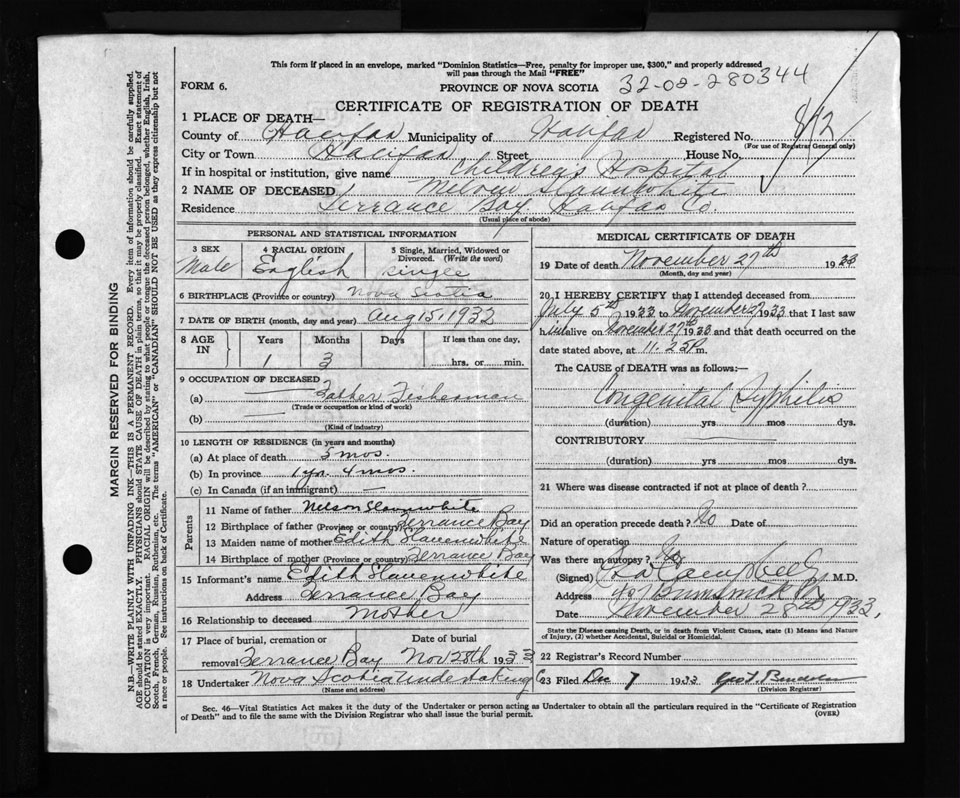 This form if placed in an envelope, marked "Dominion Statistics—Free, penalty for improper use, $300," and properly addressed
will pass through the Mail "FREE"
FORM 6.
PROVINCE OF NOVA SCOTIA
32-02-280344
CERTIFICATE OF REGISTRATION OF DEATH
1 PLACE OF DEATH—
County of Halifax Municipality of Halifax Registered No.
(For use of Registrar General only)
City or Town Halifax Street House No.
If in hospital or institution, give name Childrens Hospital
2 NAME OF DECEASED Melvin Slaunwhite
Residence Terrance Bay Halifax Co.
(Usual place of abode)
PERSONAL AND STATISTICAL INFORMATION
3 SEX
Male
4 RACIAL ORIGIN
English
5 Single, Married, Widowed or
Divorced. (Write the word)
single
6 BIRTHPLACE (Province or country) Nova Scotia
7 DATE OF BIRTH (month, day and year) Aug 15, 1932
8 AGE
IN
Years Months Days If less than one day,
1 3 hrs. or min.
9 OCCUPATION OF DECEASED
(a) Father Fisherman
(Trade or occupation or kind of work)
(b)
(Kind of industry)
10 LENGTH OF RESIDENCE (in years and months)
(a) At place of death 5 mos.
(b) In province 1 yr. 4 mos.
(c) In Canada (if an immigrant) —
Parents
11 Name of father Nelson Slaunwhite
12 Birthplace of father (Province or country) Terrance Bay
13 Maiden name of mother Edith Slauenwhite
14 Birthplace of mother (Province or country) Terrance Bay
15 Informant's name Edith Slauenwhite
Address Terrance Bay
16 Relationship to deceased Mother
17 Place of burial, cremation or Date of burial
removal Terrance Bay Nov 28th 1933
18 Undertaker Nova Scotia Undertaking
(Name and address)
MEDICAL CERTIFICATE OF DEATH
19 Date of death November 27th 1933
(Month, day and year)
20 I HEREBY CERTIFY that I attended deceased from
July 5th 1933 to November 27 1933 that I last saw
him alive on November 27th 1933 and that death occurred on the
date stated above, at 11:25 P m.
The CAUSE of DEATH was as follows:—
Congenital Syphilis
(duration) yrs mos dys.
CONTRIBUTORY
(duration) yrs mos dys.
21 Where was disease contracted if not at place of death?
Did an operation precede death? No Date of
Nature of operation
Was there an autopsy? No
(Signed) Campbell M.D.
Address Brunswick St
Date November 28th 1933.
State the Disease causing Death, or in death from Violent Causes, state (1) Means and Nature
of Injury, (2) whether Accidental, Suicidal or Homicidal.
22 Registrar's Record Number
23 Filed Dec 7 1933
(Division Registrar)
Sec. 46—Vital Statistics Act makes it the duty of the Undertaker or person acting as Undertaker to obtain all the particulars required in the "Certificate of Registration
of Death" and to file the same with the Division Registrar who shall issue the burial permit.
(OVER)
MARGIN RESERVED FOR BINDING
N.B.—WRITE PLAINLY WITH UNFADING INK—THIS IS A PERMANENT RECORD. Every item of information should be carefully supplied.
AGE should be stated EXACTLY. PHYSICIANS should STATE CAUSE OF DEATH in plain terms, so that it may be properly classified. Exact statement of
OCCUPATION is very important. RACIAL ORIGIN will be described by stating to what people or tongue the deceased person belonged, whether English, Irish,
Scotch, French, German, Russian, Ruthenian, etc. The terms "AMERICAN" or "CANADIAN" SHOULD NOT BE USED as they express citizenship but not
a race or people. See instructions on back of Certificate.